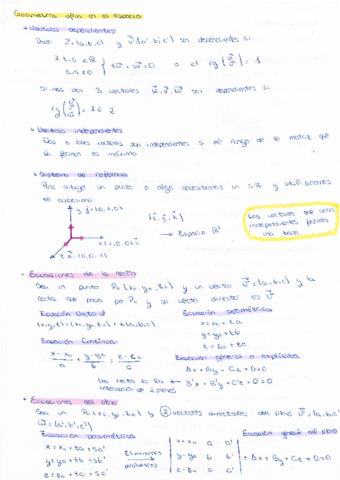 Geometría afín en el Espacio
• Vectores dependientes
Dados v⃗=(a,b,c) y u⃗(a',b',c') son dependientes si
∃ t,s ∈ ℝ
t,s≠0 } tu⃗+sv⃗=0 o el rg(u⃗ v⃗)=1
Si nos dan 3 vectores u⃗, v⃗, w⃗ son dependientes si
rg(u⃗ v⃗ w⃗) = 1 ó 2
• Vectores independientes
Dos o tres vectores son independientes si el rango de la matriz que
los forman es máximo
• Sistema de referencia
Para dibujar un punto o algo necesitamos un S.R y utilizaremos
el cartesiano
{i⃗, j⃗, k⃗}
→ Espacio ℝ³
Los vectores que sean
independientes forman
una base
• Ecuaciones de la recta
Sea un punto P₀(x₀,y₀,z₀) y un vector v⃗=(a,b,c) y la
recta que pasa por P₀ y su vector director es v⃗
Ecuación Vectorial
(x,y,z)=(x₀,y₀,z₀)+t(a,b,c)
Ecuación paramétricas
x=x₀+ta
y=y₀+tb
z=z₀+tc
Ecuación Continua
x-x₀/a = y-y₀/b = z-z₀/c
Ecuación general o explícita
Ax+By+Cz+D=0
A'x+B'y+C'z+D'=0
Una recta es la
intersección de 2 planos
• Ecuaciones del plano
Sea un P₀(x₀,y₀,z₀) y 2 vectores directores del plano v⃗=(a,b,c)
w⃗=(a',b',c')
Ecuación paramétricas
x=x₀+ta+sa'
y=y₀+tb+sb'
z=z₀+tc+sc'
Eliminamos
parámetros
x-x₀ a a'
y-y₀ b b'
z-z₀ c c'
Ecuación general del plano
=Ax+By+Cz+D=0